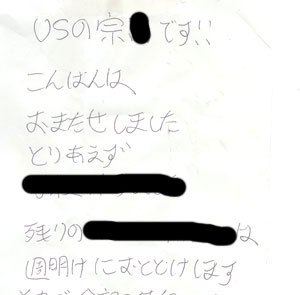 USの宗です!!
こんばんは、
おまたせしました
とりあえず
残りの は
週明けにおとどけします